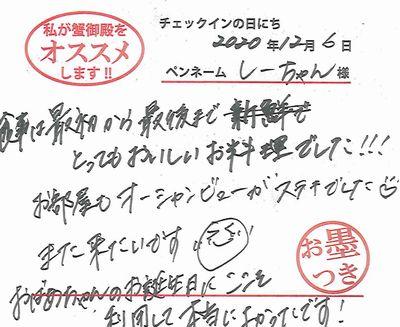 私が蟹御殿を
オススメ
します!!
チェックインの日にち
2020年12月6日
ペンネーム しーちゃん 様
食事は最初から最後まで新鮮で
とってもおいしいお料理でした!!!
お部屋もオーシャンビューがステキでした
また来たいです
おばあちゃんのお誕生日にここを
利用して本当によかったです!
お墨
つき